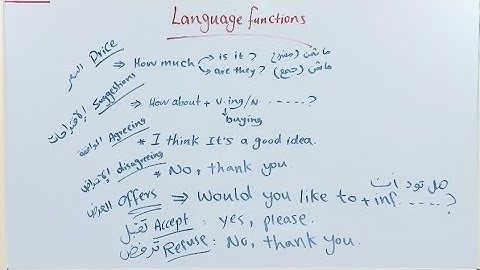 Language functions
السعر Price ⇒ How much is it? ما ثمن (مفرد)
are they? ما ثمن (جمع)
الإقتراحات Suggestions ⇒ How about + V.ing/N .....?
buying
الموافقة Agreeing * I think It's a good idea.
disagreeing * No, thank you.
العرض Offers ⇒ Would you like to + inf .....? هل تود أن
تقبل Accept : yes, please.
ترفض Refuse : No, thank you.